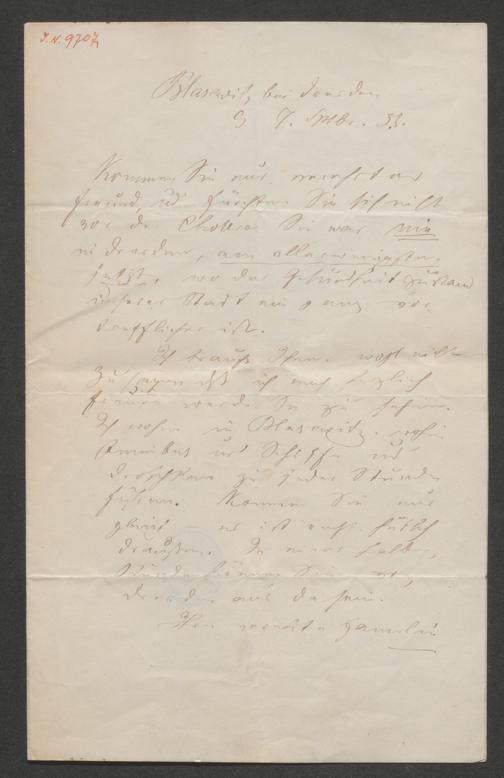 I. N. 9707
Blasewitz bei Dresden
7. Septbr. 53.
Kommen Sie nur
Freund, und fürchten Sie sich nicht
vor der Cholera. Sie war nie
in Dresden, am allerwenigsten
jetzt, wo der Gesundheit Zustand
unserer Stadt ein ganz vor
trefflicher ist.
Ich brauche Ihnen wohl nicht
zu sagen daß ich mich herzlich
freuen werde Sie zu sehen.
Ich wohne in Blasewitz, wohin
Omnibus und Schiffe und
Droschken zu jeder Stunde
führen. Kommen Sie nur
gleich es ist recht hübsch
draußen. In einer halben
Stunde können Sie von
Dresden aus da sein.
Ihr